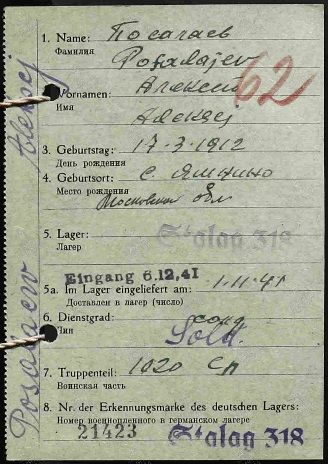 1. Name: Посалаев
Фамилия
Posalajev
62
Vornamen: Алексей
Имя
Aleksej
3. Geburtstag: 17-3-1912
День рождения
4. Geburtsort: с. Яшкино
Место рождения
Московская обл
5. Lager: Stalag 318
Лагерь
Eingang 6.12.41
5a. Im Lager eingeliefert am: 1-11-41
Доставлен в лагерь (число)
6. Dienstgrad: солд
Чин
Sold.
7. Truppenteil: 1020 сп
Воинская часть
8. Nr. der Erkennungsmarke des deutschen Lagers:
Номер военнопленного в германском лагере
21423
Stalag 318
Posalajew Alexej